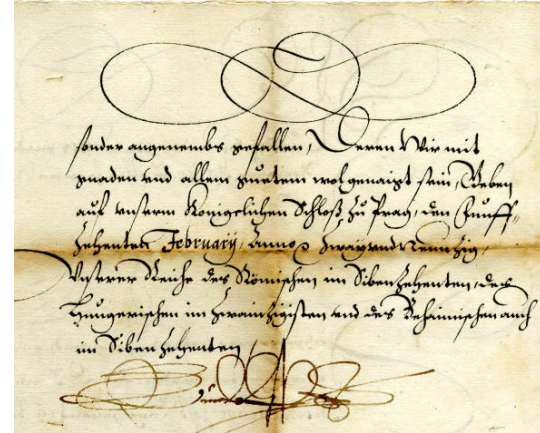 sonder angenembs gefallen, Deren Wir mit
gnaden vnd allem guetem wolgenaigt sein, Geben
auf vnserm Königelichen Schloß zu Prag, den Fünff-
zehenten February, Anno &c. Zwayvndneünzig,
Vnserer Reiche des Römischen im Sibenzehenten, des
Hungerischen im Zwainzigisten vnd des Behaimischen auch
im Sibenzehenten